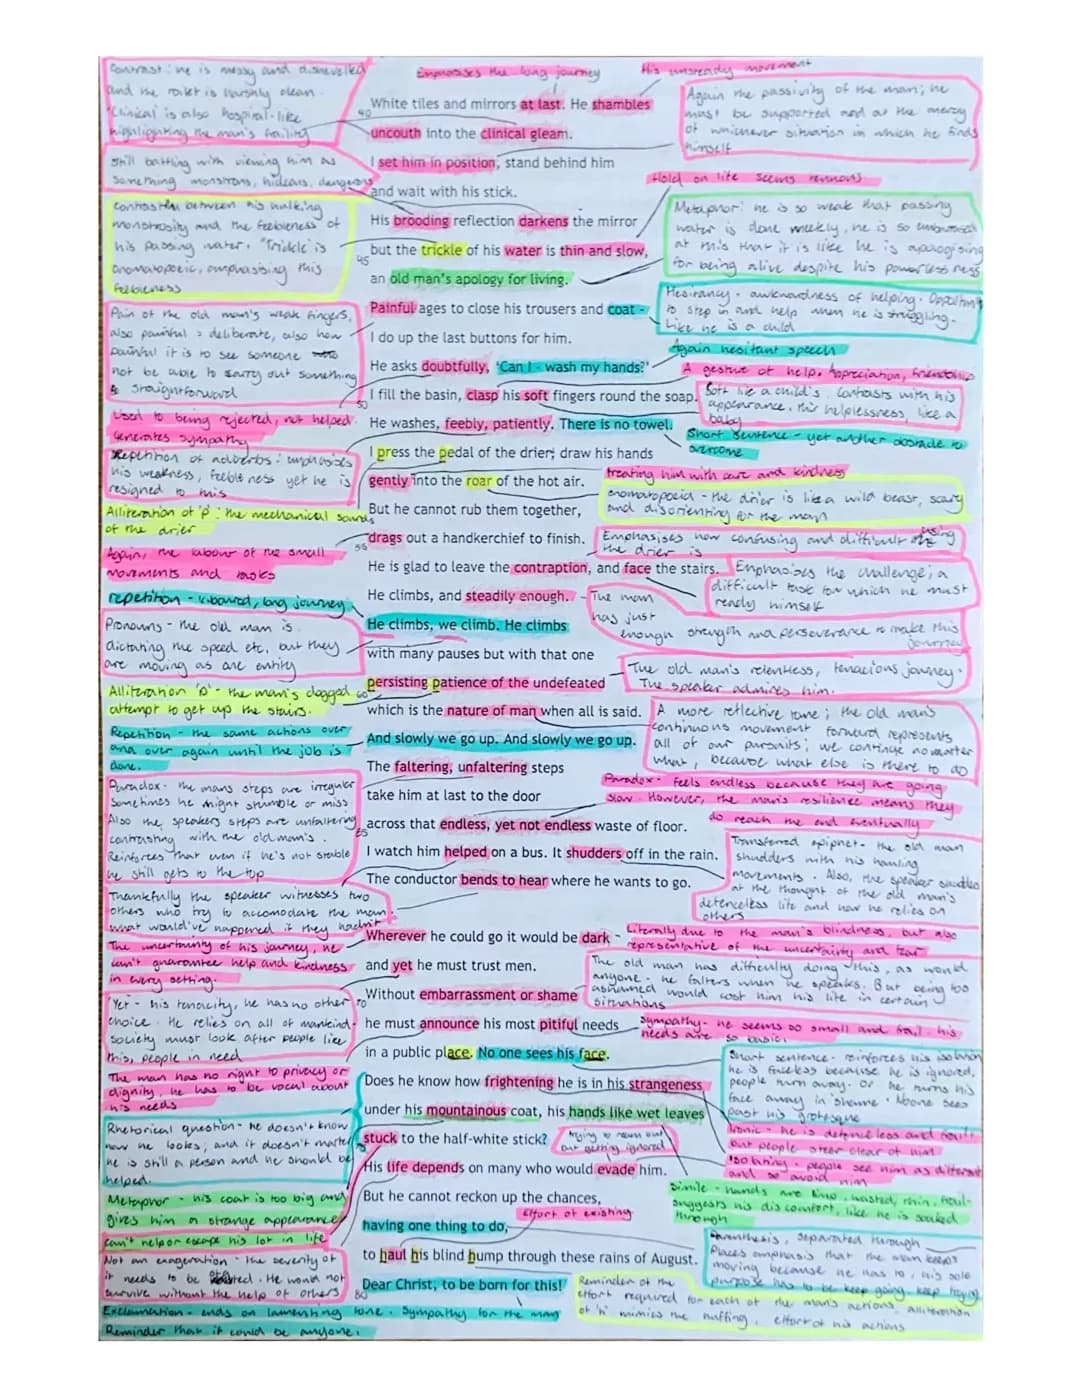 Contrast: he is messy and dishevelled
and the toilet is harshly clean.
'Clinical is also hospital-like
highlighting the man's frailty
Emphasises the long journey
His unsteady movement
Again the passivity of the man; he
must be supported and at the mercy
of whichever situation in which he finds
himself
White tiles and mirrors at last. He shambles
40
uncouth into the clinical gleam.
I set him in position, stand behind him
and wait with his stick.
Still battling with viewing him as
something monstrous, hideous, dangerous
Hold on life seems tenuous
His brooding reflection darkens the mirror
but the trickle of his water is thin and slow,
45
an old man's apology for living.
Contrast between his hulking
monstrosity and the feebleness of
his passing water. "Trickle" is
onomatopoeic, emphasising this
feebleness
Metaphor: he is so weak that passing
water is done meekly, he is so embarrassed
at this that it is like he is apologising
for being alive despite his powerlessness
Painful ages to close his trousers and coat -
I do up the last buttons for him.
He asks doubtfully, 'Can I - wash my hands?'
I fill the basin, clasp his soft fingers round the soap.
50
He washes, feebly, patiently. There is no towel.
I press the pedal of the drier; draw his hands
gently into the roar of the hot air.
But he cannot rub them together,
drags out a handkerchief to finish.
55
Pain of the old man's weak fingers,
also painful = deliberate, also how
painful it is to see someone
not be able to carry out something
so straightforward
Hesitancy - awkwardness of helping. Opportunity
to step in and help when he is struggling.
Like he is a child
Again hesitant speech
A gesture of help. Appreciation, friendship
Soft like a child's. Contrasts with his
appearance. His helplessness, like a
baby
Used to being rejected, not helped.
Generates sympathy
Short sentence - yet another obstacle to
overcome
Repetition of adverbs: emphasises
his weakness, feebleness yet he is
resigned to this
treating him with care and kindness
onomatopoeia - the drier is like a wild beast, scary
and disorienting for the man
Alliteration of 'p': the mechanical sounds
of the drier
Emphasises how confusing and difficult using
the drier is
Again, the labour of the small
movements and tasks
He is glad to leave the contraption, and face the stairs.
He climbs, and steadily enough.
He climbs, we climb. He climbs
with many pauses but with that one
persisting patience of the undefeated
60
which is the nature of man when all is said.
And slowly we go up. And slowly we go up.
The faltering, unfaltering steps
take him at last to the door
across that endless, yet not endless waste of floor.
65
I watch him helped on a bus. It shudders off in the rain.
The conductor bends to hear where he wants to go.
Emphasises the challenge; a
difficult task for which he must
ready himself
repetition - laboured, long journey
The man
has just
enough strength and perseverance to make this
journey
Pronouns - the old man is
dictating the speed etc, but they
are moving as one entity
The old man's relentless, tenacious journey.
The speaker admires him.
Alliteration 'p' - the man's dogged
attempt to get up the stairs.
A more reflective tone; the old man's
continuous movement forward represents
all of our pursuits; we continue no matter
what, because what else is there to do
Repetition - the same actions over
and over again until the job is
done.
Paradox - the mans steps are irregular
sometimes he might stumble or miss.
Also the speakers steps are unfaltering
contrasting with the old man's.
Reinforces that even if he's not stable
he still gets to the top
Paradox - feels endless because they are going
slow. However, the man's resilience means they
do reach the end eventually
Transferred epiphet - the old man
shudders with his hauling
movements. Also, the speaker shudders
at the thought of the old man's
defenceless life and how he relies on
others
Thankfully the speaker witnesses two
others who try to accomodate the man.
what would've happened if they hadn't
Wherever he could go it would be dark
and yet he must trust men.
Without embarrassment or shame
70
he must announce his most pitiful needs
in a public place. No one sees his face.
Does he know how frightening he is in his strangeness
under his mountainous coat, his hands like wet leaves
stuck to the half-white stick?
75
His life depends on many who would evade him.
But he cannot reckon up the chances,
having one thing to do,
to haul his blind hump through these rains of August.
Dear Christ, to be born for this!
80
The uncertainty of his journey, he
can't guarantee help and kindness
in every setting.
Literally due to the man's blindness, but also
representative of the uncertainty and fear
The old man has difficulty doing this, as would
anyone - he falters when he speaks. But being too
ashamed would cost him his life in certain
situations
'Yet' - his tenacity, he has no other
choice. He relies on all of mankind -
society must look after people like
this, people in need
Sympathy - he seems so small and frail. his
needs are so basic.
The man has no right to privacy or
dignity, he has to be vocal about
his needs
Short sentence - reinforces his isolation
he is faceless because he is ignored,
people turn away. Or he turns his
face away in shame. Noone sees
past his grotesque
Rhetorical question - he doesn't know
how he looks, and it doesn't matter
he is still a person and he should be
helped.
trying to reach out
but getting ignored
Ironic - he is defenceless and frail
but people steer clear of him
Isolating - people see him as different
and so avoid him
Simile - hands are limp, wasted, thin, frail -
suggests his discomfort, like he is soaked
through
Metaphor - his coat is too big and
gives him a strange appearance
can't help or escape his lot in life
Effort of existing
Parenthesis, separated through
Places emphasis that the man keeps
moving because he has to, his sole
purpose has to be keep going, keep trying
Not an exaggeration - the severity of
it needs to be stated. He would not
survive without the help of others
Reminder of the
effort required for each of the man's actions, alliteration
of 'h' mimics the huffing, effort of his actions
Exclamation - ends on lamenting tone. Sympathy for the man
Reminder that it could be anyone.